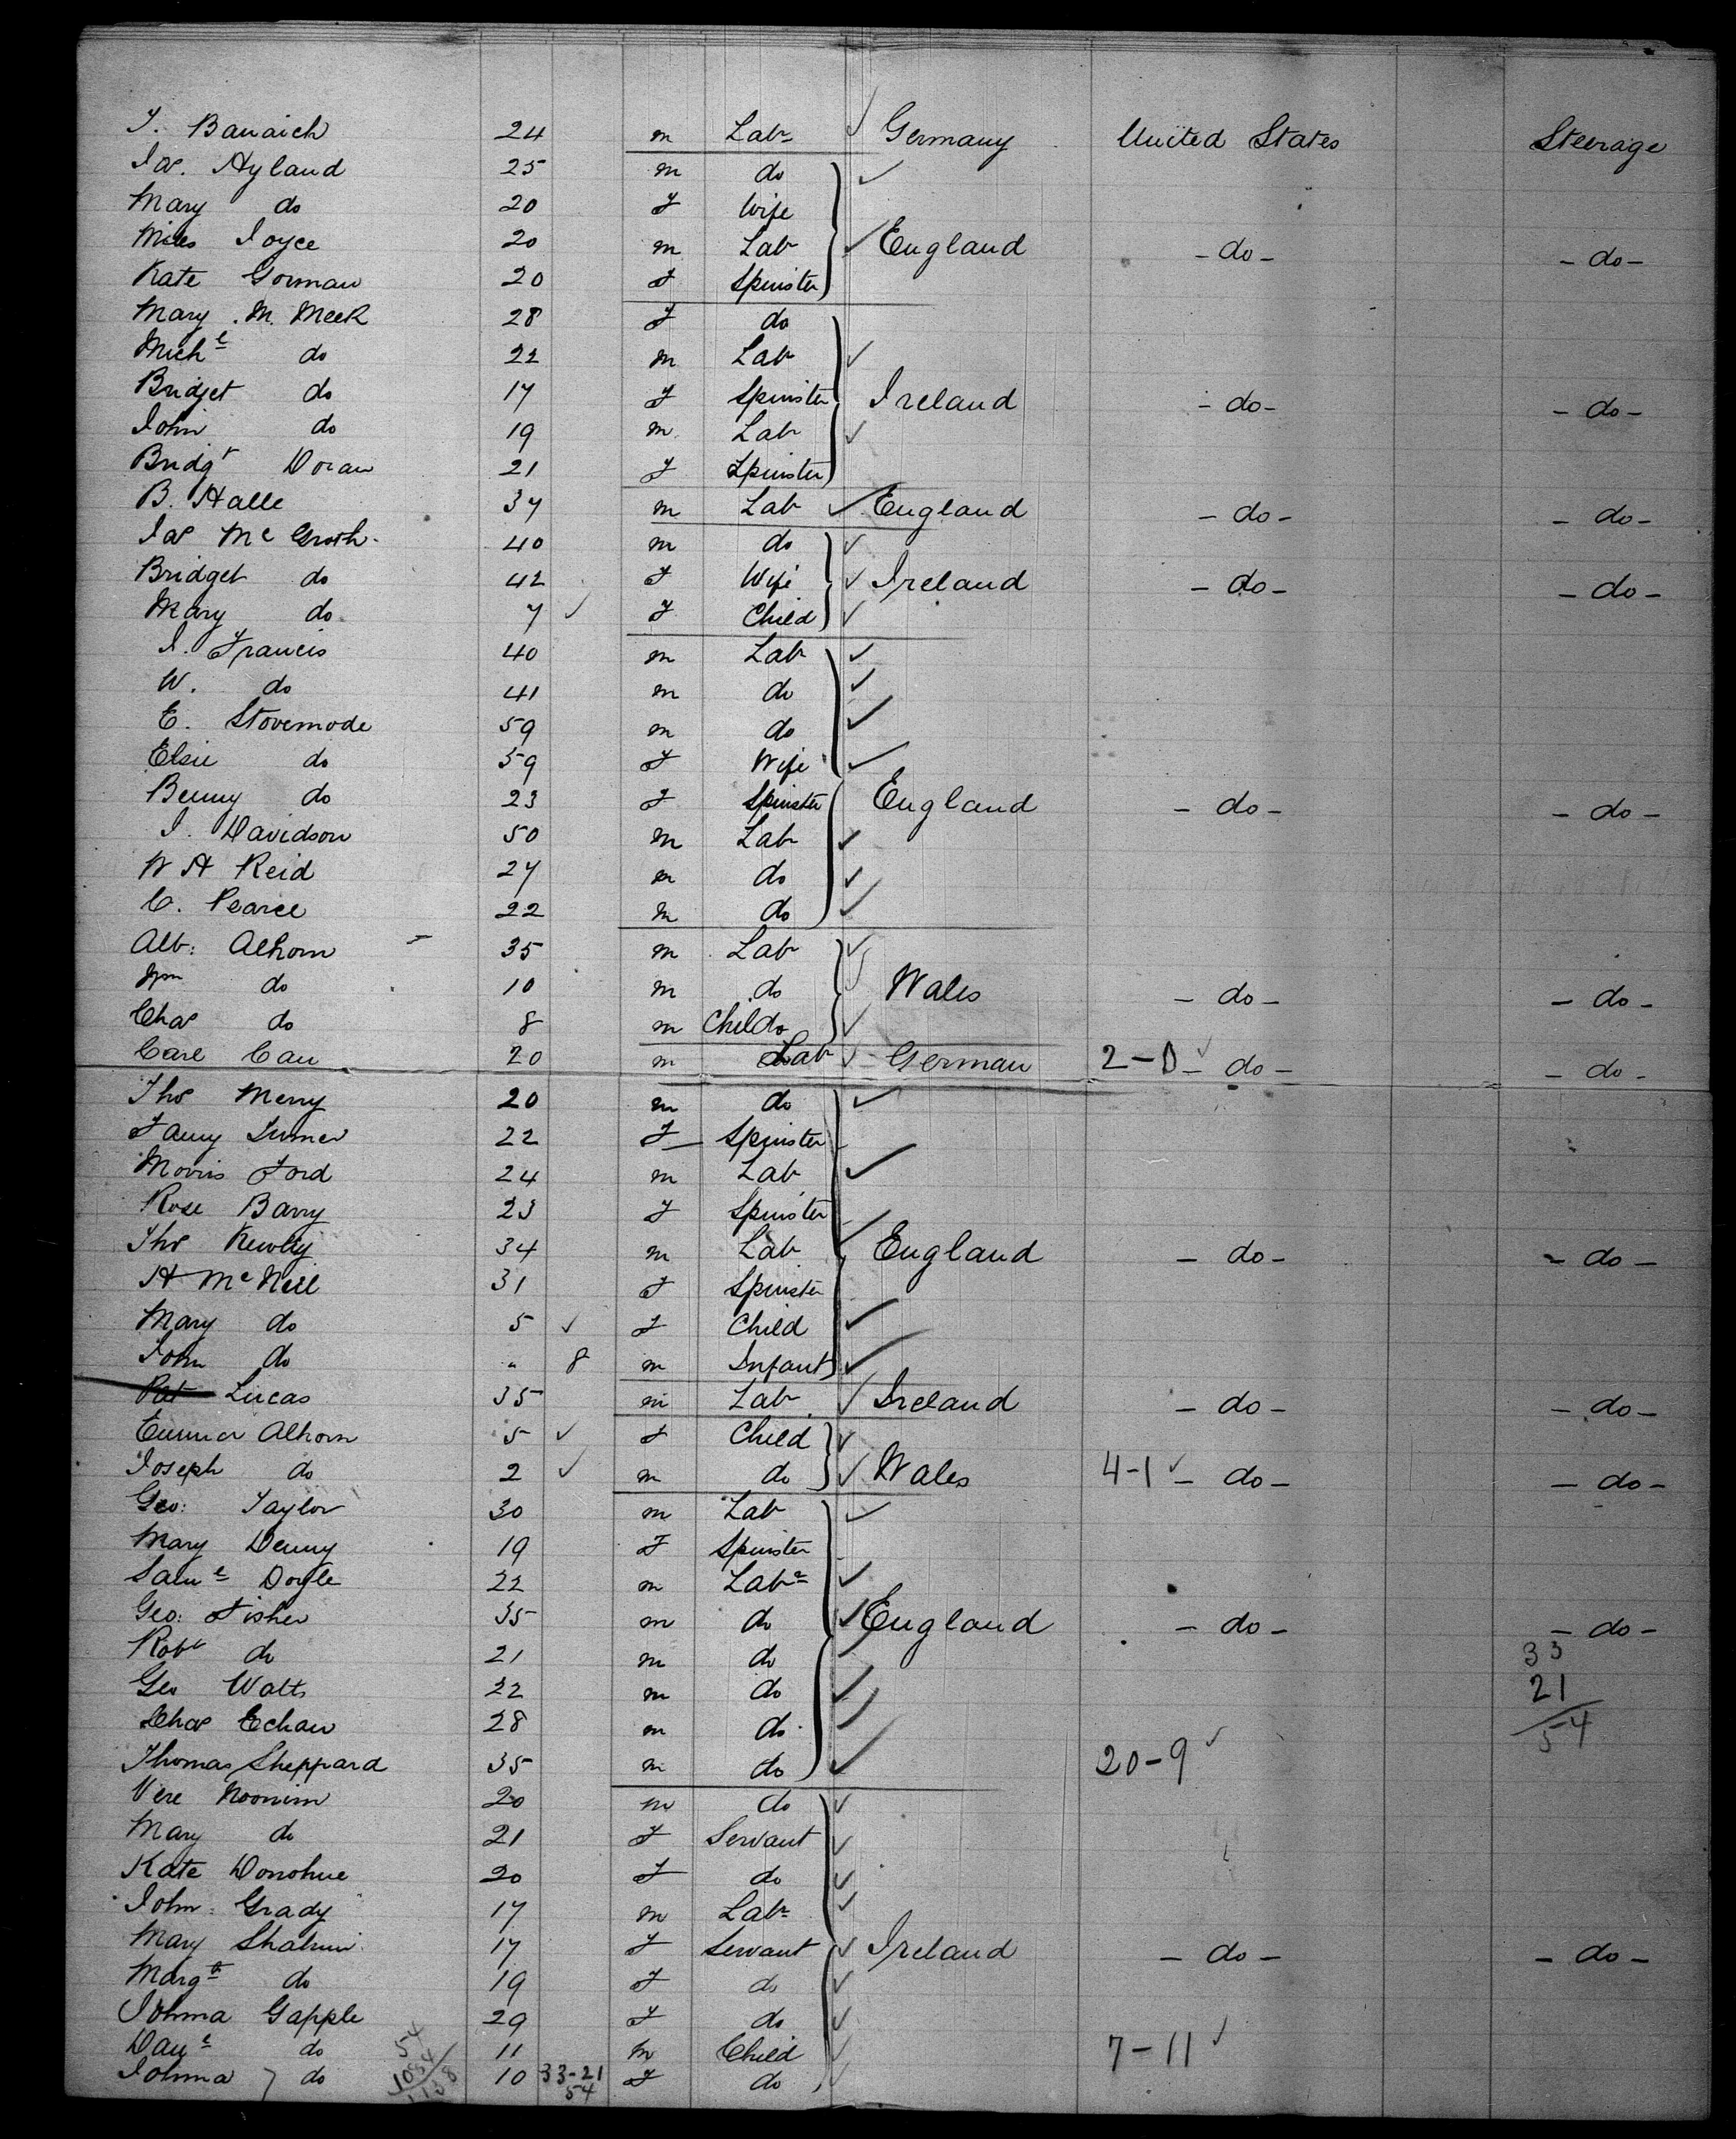 J. Banaich 24 m Labr Germany United States Steerage
Jas. Hyland 25 m do
Mary do 20 F Wife
Miles Joyce 20 m Labr England - do - - do -
Kate Gorman 20 F Spinster
Mary M. Meek 28 F do
Michl do 22 m Labr
Bridget do 17 F Spinster Ireland - do - - do -
John do 19 m Labr
Bridgt Doran 21 F Spinster
B. Halle 37 m Labr England - do - - do -
Jas Mc Groth 40 m do
Bridget do 42 F Wife Ireland - do - - do -
Mary do 7 F Child
J. Francis 40 m Labr
W. do 41 m do
E. Stovemode 59 m do
Elsie do 59 F Wife
Benny do 23 F Spinster England - do - - do -
J. Davidson 50 m Labr
W H Reid 27 m do
C. Pearce 22 m do
Alb: Alhorn 35 m Labr
Wm do 10 m do Wales - do - - do -
Chas do 8 m Child
Carl Cau 20 m Labr German 2-0 - do - - do -
Thos Merry 20 m do
Fanny 22 F Spinster
Morris Ford 24 m Labr
Rose Barry 23 F Spinster
Thos Newby 34 m Labr England - do - - do -
H McNeil 31 F Spinster
Mary do 5 F Child
John do " 8 m Infant
Pat Lucas 35 m Labr Ireland - do - - do -
Emma Alhorn 5 F Child
Joseph do 2 m do Wales 4-1 - do - - do -
Geo: Taylor 30 m Labr
Mary Denny 19 F Spinster
Saml Doyle 22 m Labr
Geo: Fisher 35 m do England - do - - do -
Robt do 21 m do 33
Geo Watts 22 m do 21
Chas Echau 28 m do 54
Thomas Sheppard 35 m do 20-9
Vere Noonim 20 m do
Mary do 21 F Servant
Kate Donohue 20 F do
John Grady 17 m Labr
Mary 17 F Servant Ireland - do - - do -
Margt do 19 F do
Johma Gapple 29 F do
Danl do 54 11 m Child 7-11
Johma do 1084 10 33-21 F do
1138 54